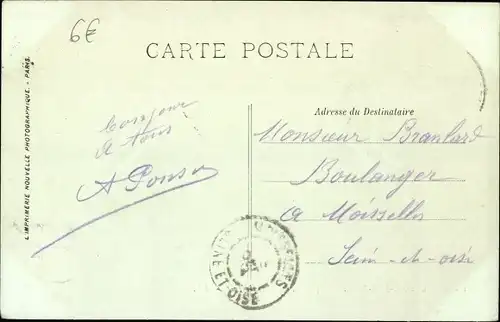 6€
CARTE POSTALE
L'IMPRIMERIE NOUVELLE PHOTOGRAPHIQUE. - PARIS.
Bonjour
A tous
A Pons
Adresse du Destinataire
Monsieur Branlard
Boulanger
a Moisselles
Sein-et-oise
ET-OISE